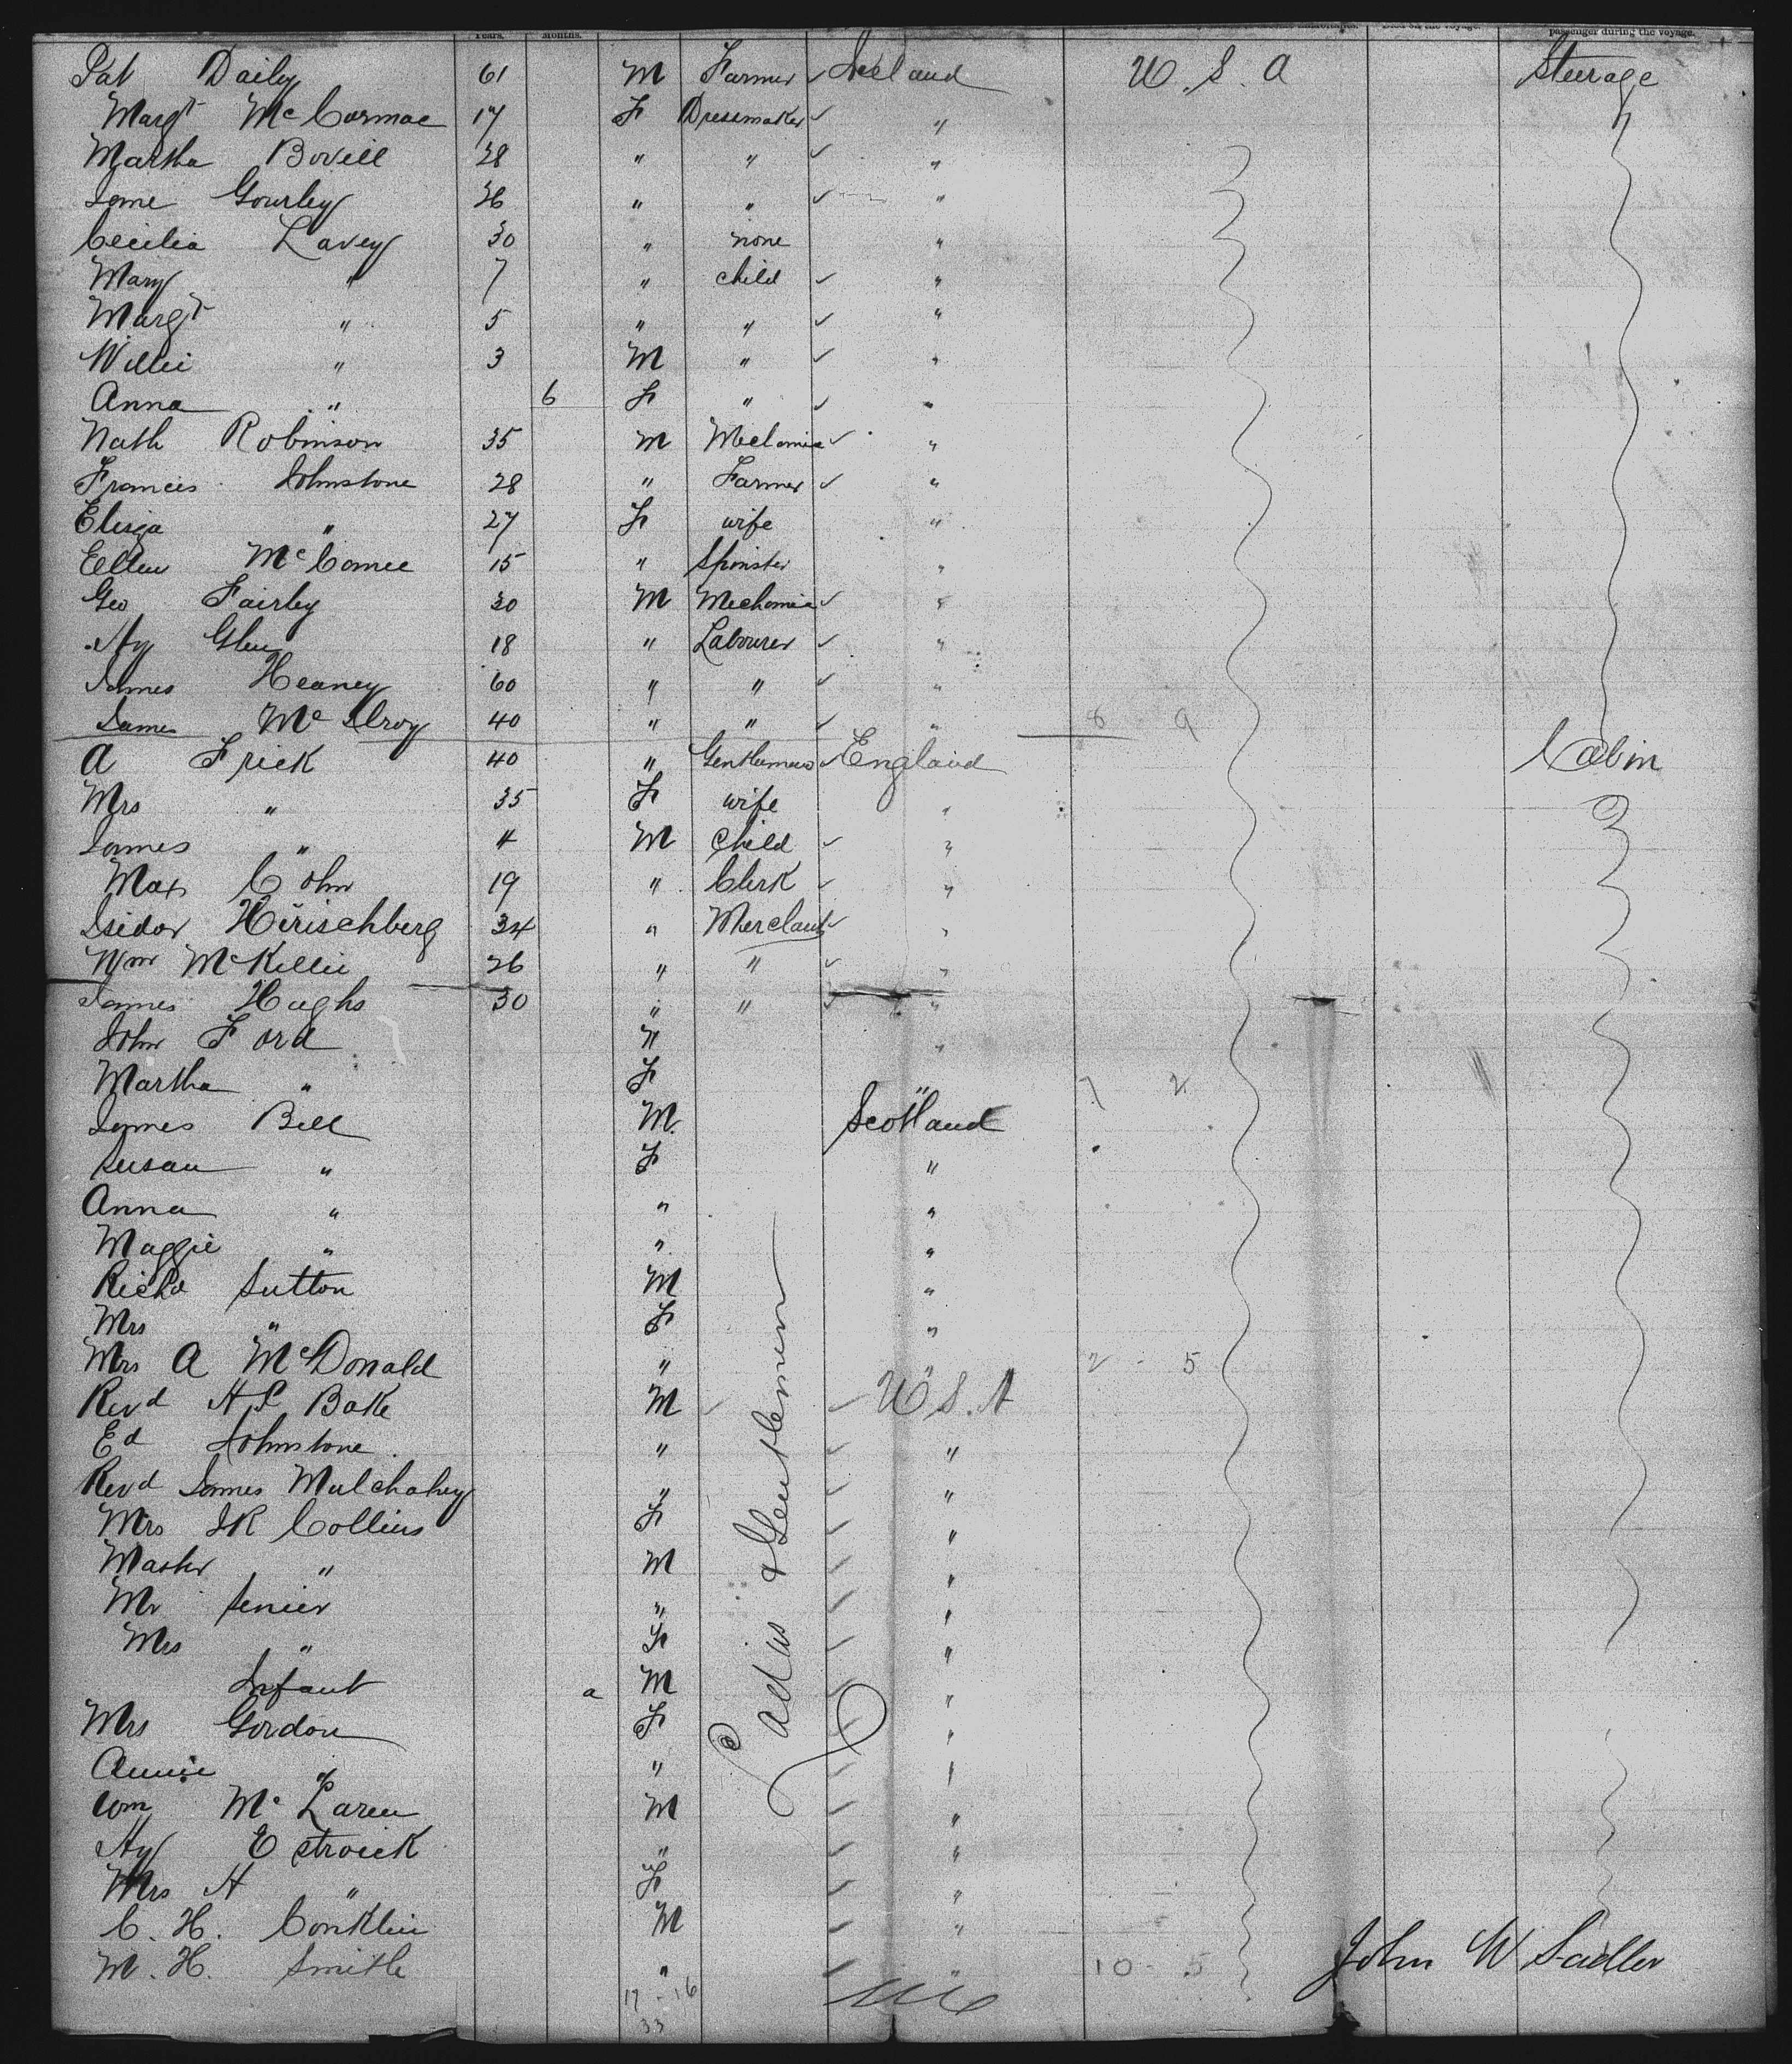 Years. Months. Died on the voyage. passenger during the voyage.
Pat Daily 61 M Farmer ✓ Ireland U. S. A Steerage
Margt McCormac 17 F Dressmaker ✓ " "
Martha Bovill 28 " " ✓ "
Jane Gourley 26 " " ✓ "
Cecilia Lavey 30 " none "
Mary " 7 " child ✓ "
Margt " 5 " " ✓ "
Willie " 3 M " ✓ "
Anna " 6 F " ✓ "
Nath Robinson 35 M Mechanic ✓ "
Francis Johnstone 28 " Farmer ✓ "
Eliza " 27 F wife "
Ellen McComee 15 " Spinster "
Geo Fairley 30 M Mechanic ✓ "
Hy Glen 18 " Labourer ✓ "
James Heaney 60 " " ✓ "
James McIlroy 40 " " ✓ " 8 9
A Frick 40 " Gentleman ✓ England Cabin
Mrs " 35 F wife "
James " 4 M Child ✓ "
Max Cohn 19 " Clerk ✓ "
Isidor Hirischberg 34 " Merchant ✓ "
Wm McKillie 26 " " ✓ "
James Hughs 30 " " ✓ "
John Ford " "
Martha " F " 7 2
James Bell M. Scotland
Susan " F "
Anna " " "
Maggie " " "
Richd Sutton M "
Mrs " F "
Mrs A McDonald " " 2 - 5
Revd H P Bake M ✓ ✓ U S. A
Ed Johnstone " ✓ "
Revd James Mulchahey " ✓ "
Mrs J R Collins F ✓ "
Master " M ✓ "
Mr Senier " ✓ "
Mrs " F ✓ "
Infant a M ✓ "
Mrs Gordon F ✓ "
Annie " " ✓ "
Wm McLaren M ✓ "
Hy Estroick " ✓ "
Mrs H " F ✓ "
C. H. Conklin M ✓ "
M. H. Smith " ✓ " 10 - 5
Ladies & Gentlemen
John W Sadler
17 - 16
33